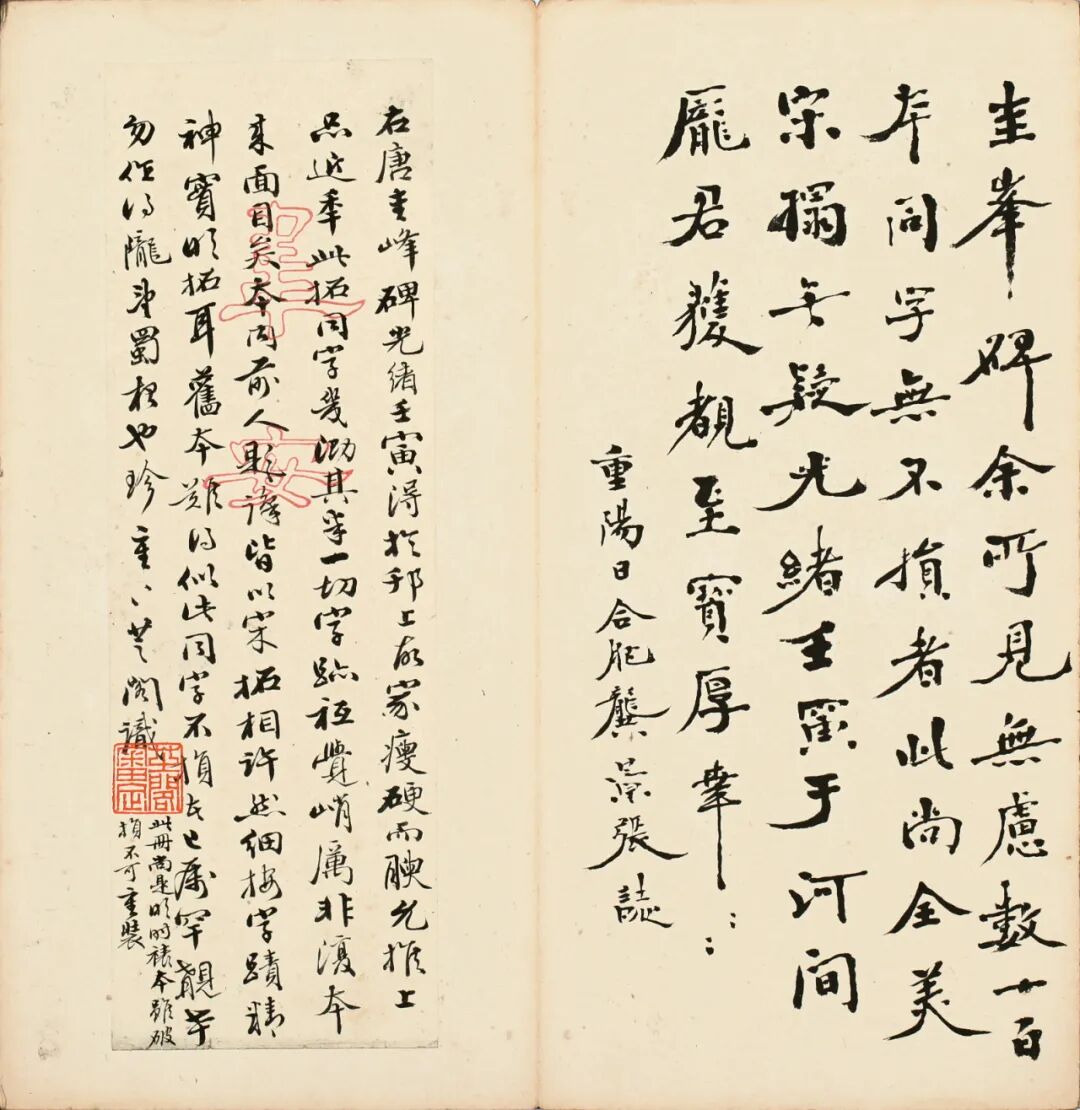 圭峯碑余所見無慮數十百
本同字無不損者此尚全美
宋搨無疑光緒壬寅于河間
龐君獲覩至寶厚幸厚幸
重陽日合肥龔景張誌
右唐圭峰碑光緒壬寅得於邗上故家瘦硬而腴允推上
品近年此拓同字幾泐其半一切字跡秪覺峭厲非復本
來面目矣本內前人題籤皆以宋拓相許然細按字蹟精
神實明拓耳舊本難得似此同字不損者已屬罕覯幸
勿作得隴望蜀想也珍重珍重芝閣識
此冊尚是明時裱本雖破
損不可重裝
芝閣